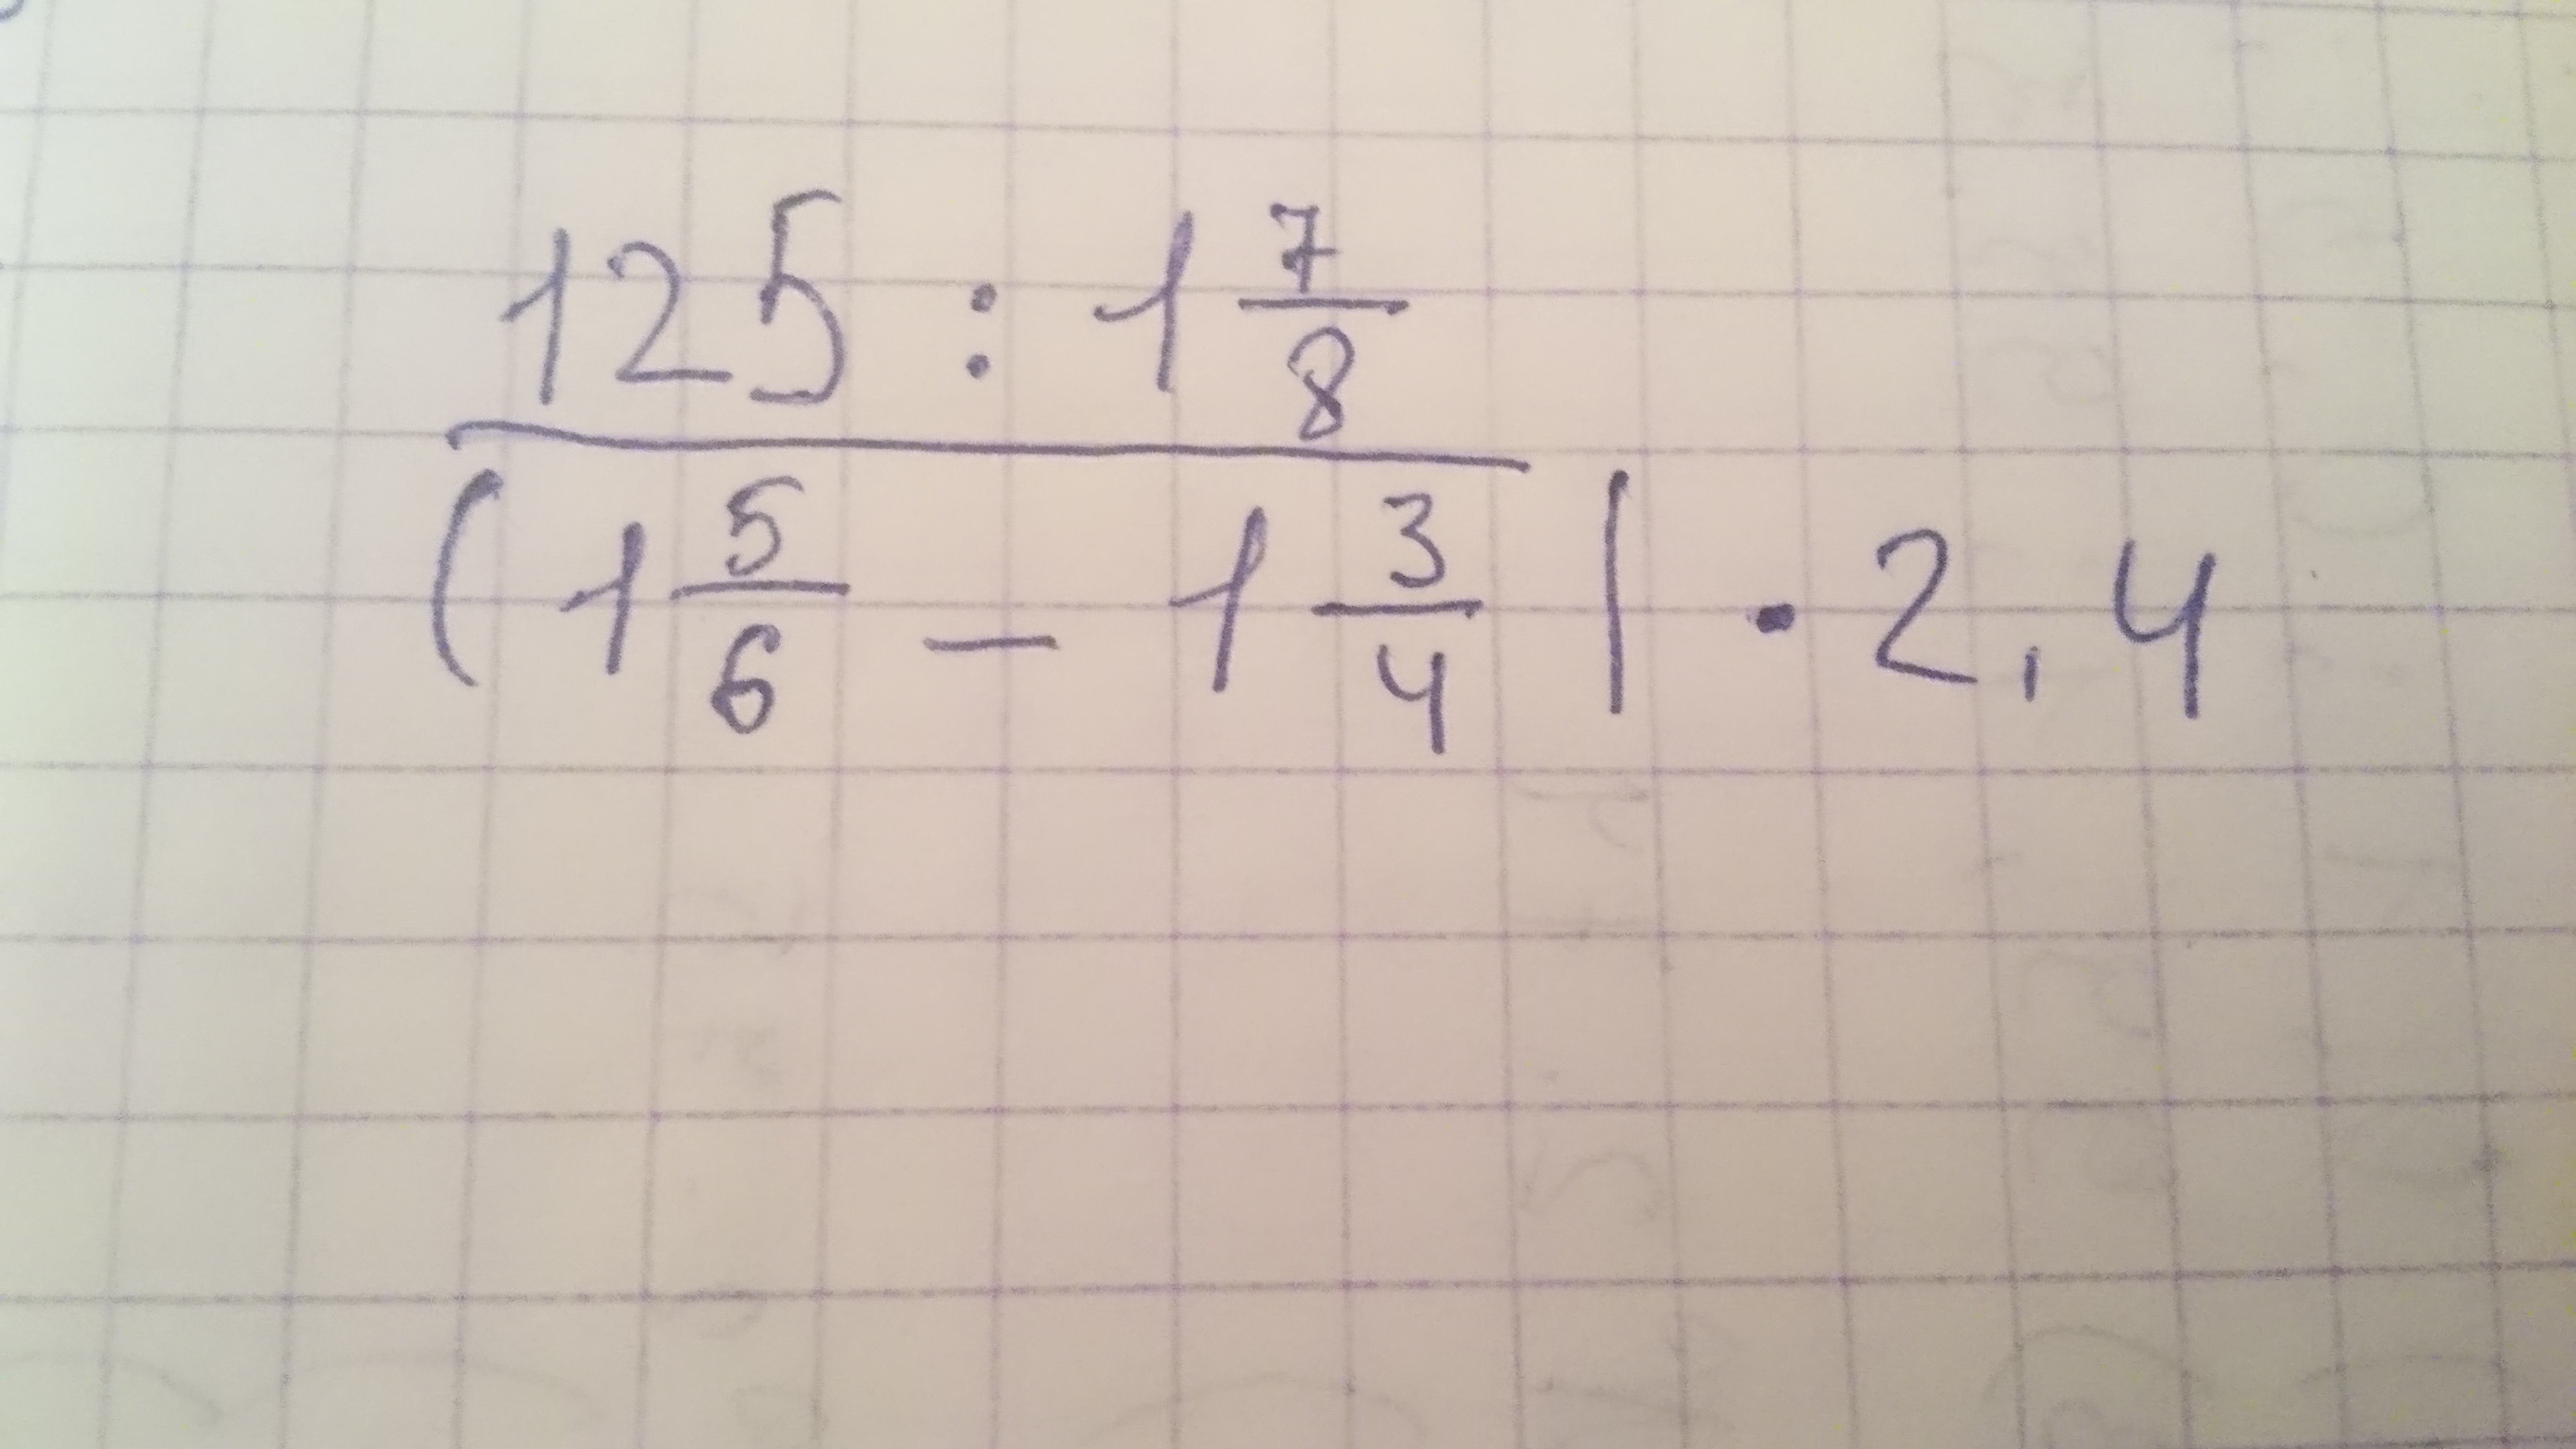 125 : 1 7/8
(1 5/6 - 1 3/4) · 2,4